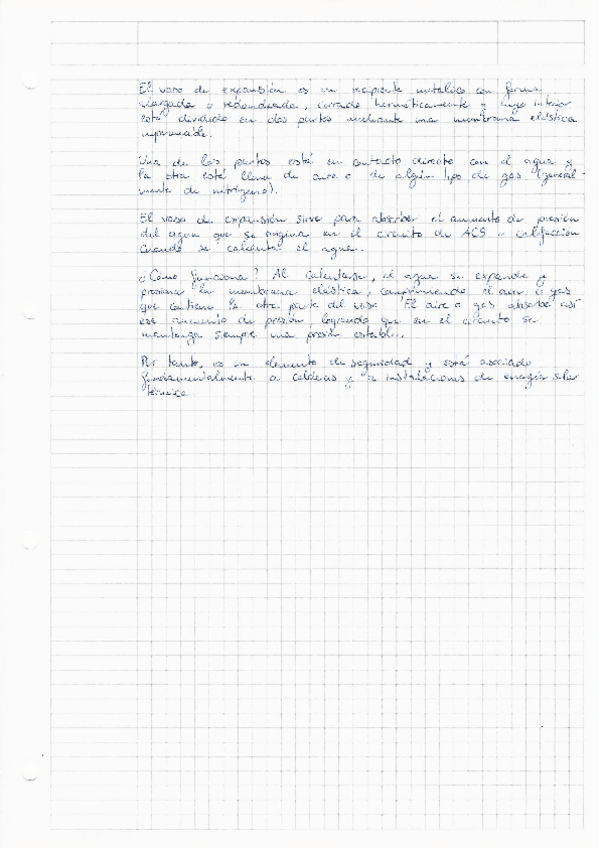 El vaso de expansión es un recipiente metálico con forma
alargada o redondeada, cerrado herméticamente y cuyo interior
está dividido en dos partes mediante una membrana elástica
impermeable.
Una de las partes está en contacto directo con el agua y
la otra está llena de aire o de algún tipo de gas (general-
mente de nitrógeno).
El vaso de expansión sirve para absorber el aumento de presión
del agua que se origina en el circuito de ACS o calefacción
cuando se calienta el agua.
¿Cómo funciona? Al calentarse, el agua se expande y
presiona la membrana elástica, comprimiendo el aire o gas
que contiene la otra parte del vaso. El aire o gas absorbe así
ese aumento de presión logrando que en el circuito se
mantenga siempre una presión estable.
Por tanto, es un elemento de seguridad y está asociado
fundamentalmente a calderas y a instalaciones de energía solar
térmica